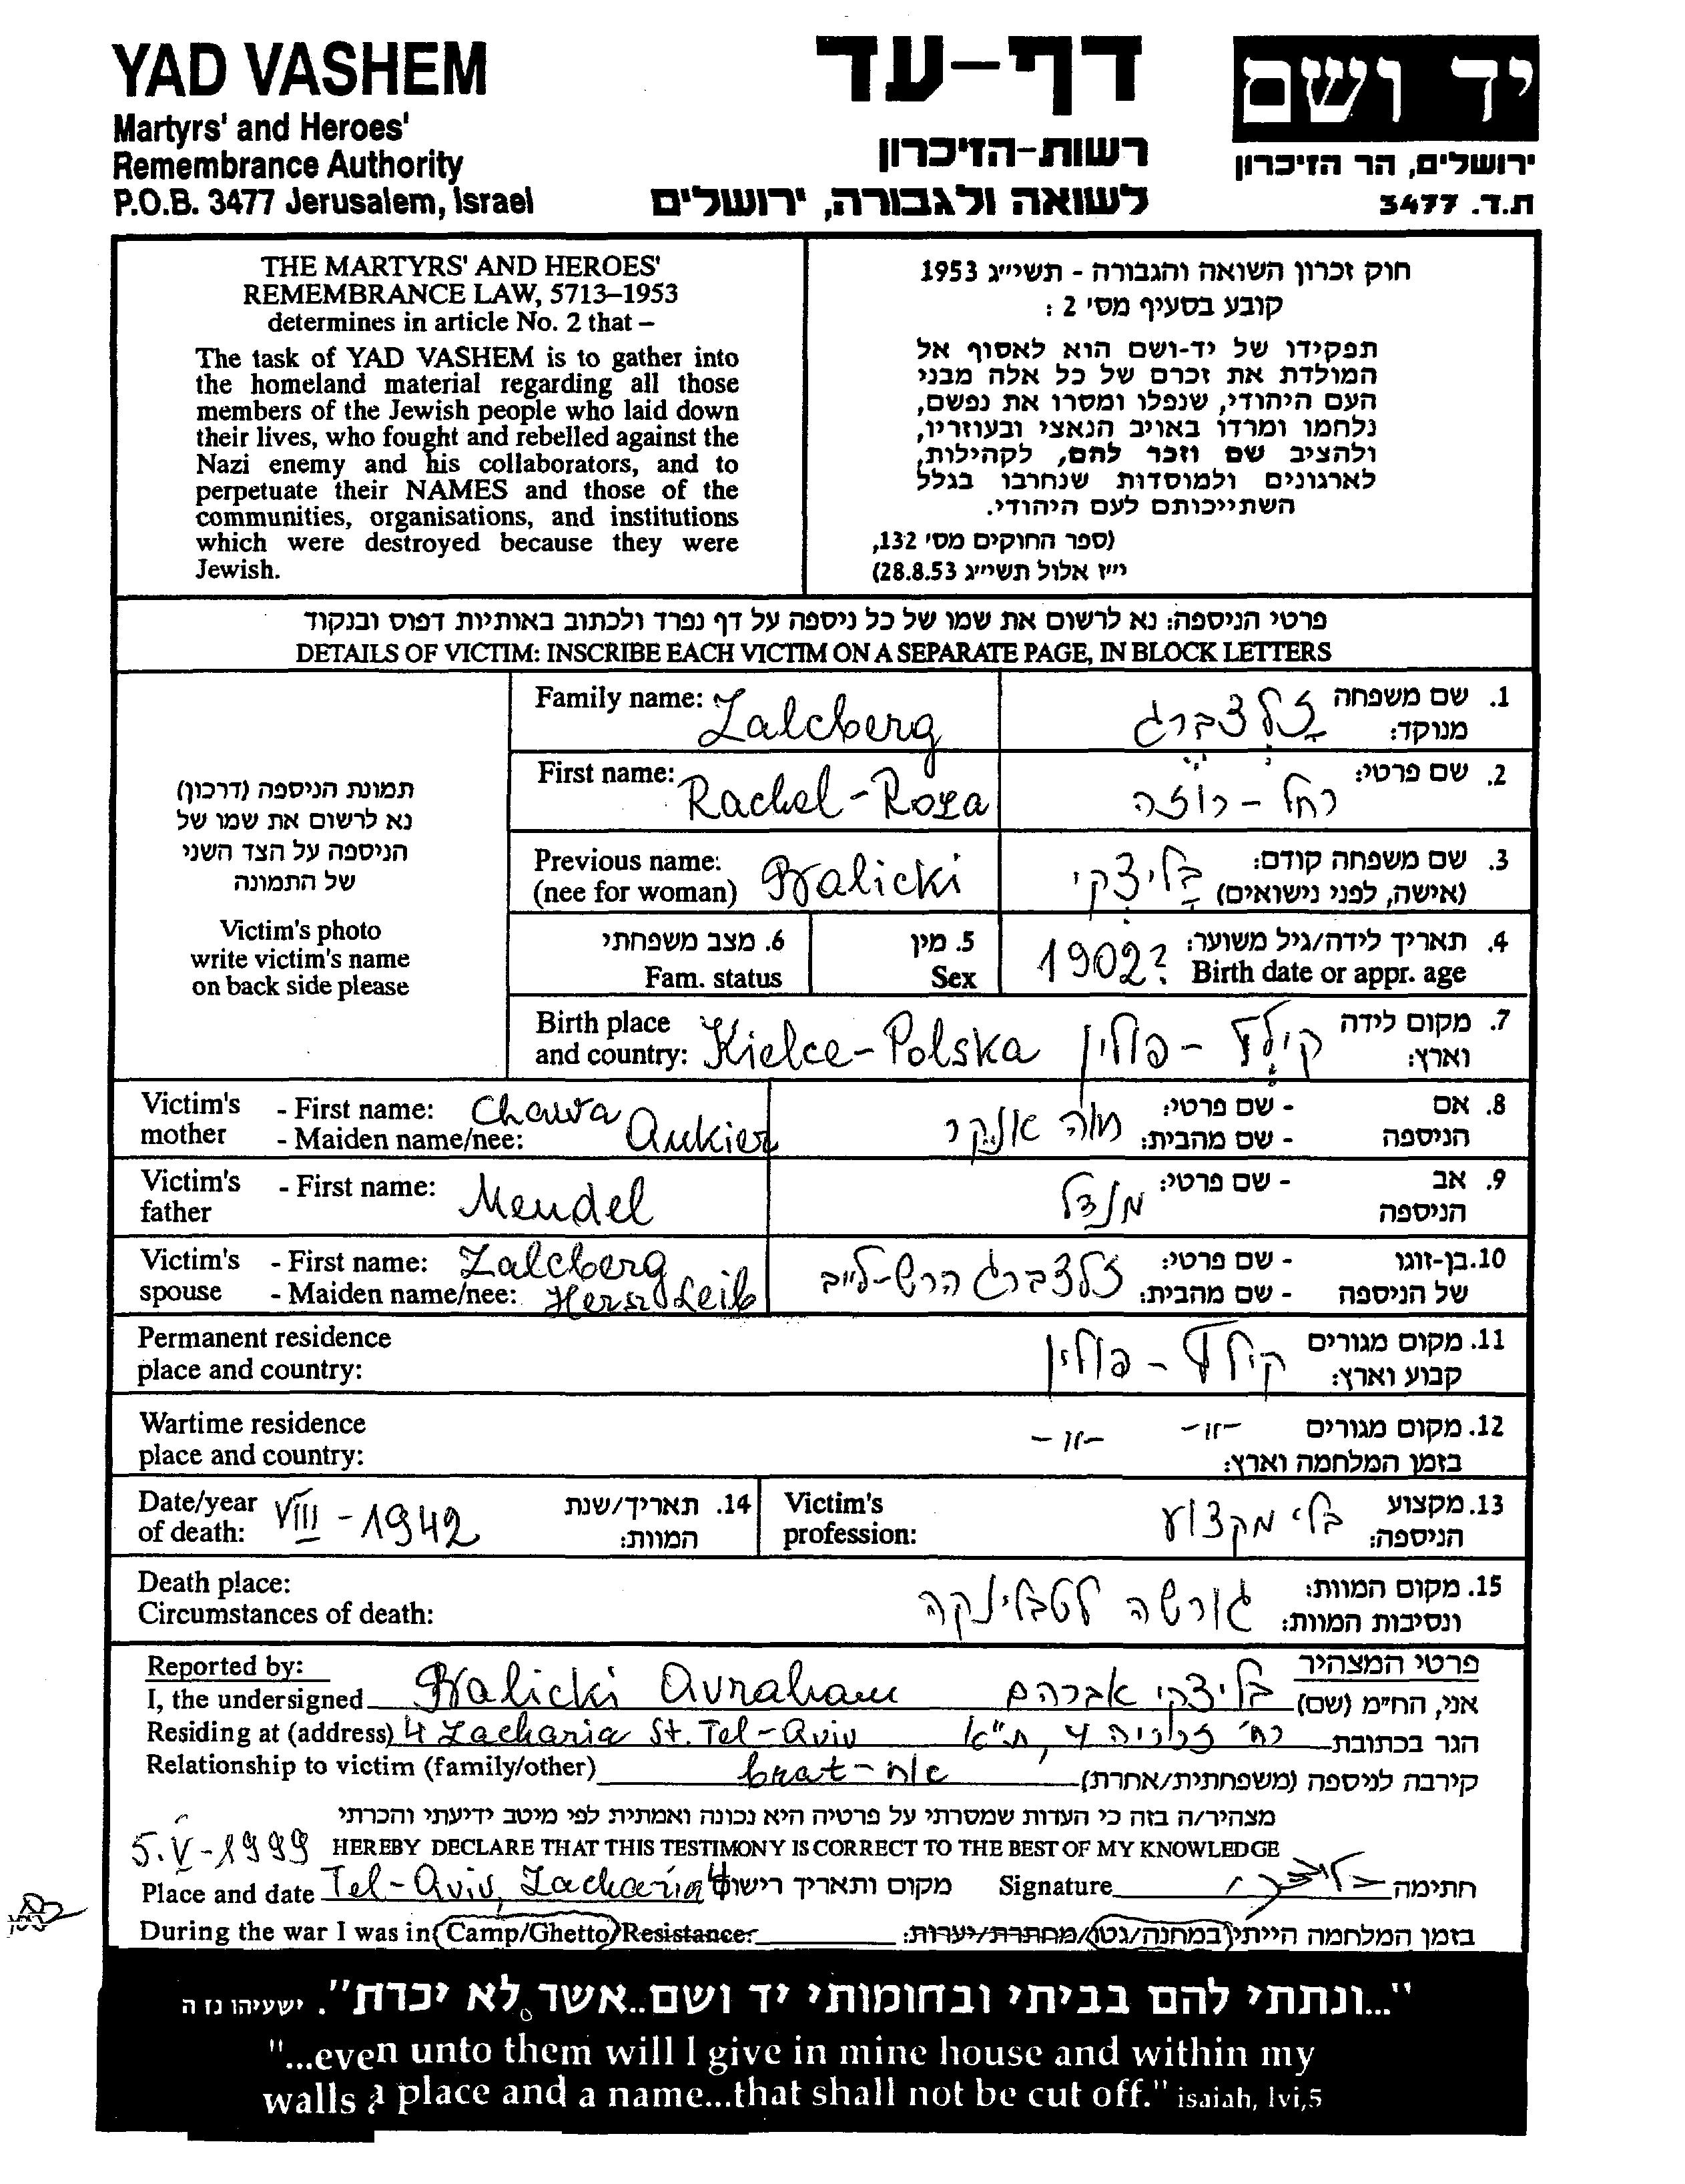 YAD VASHEM
Martyrs' and Heroes'
Remembrance Authority
P.O.B. 3477 Jerusalem, Israel
דף-עד
רשות-הזיכרון
לשואה ולגבורה, ירושלים
יד ושם
ירושלים, הר הזיכרון
ת.ד. 3477
THE MARTYRS' AND HEROES'
REMEMBRANCE LAW, 5713–1953
determines in article No. 2 that –
The task of YAD VASHEM is to gather into
the homeland material regarding all those
members of the Jewish people who laid down
their lives, who fought and rebelled against the
Nazi enemy and his collaborators, and to
perpetuate their NAMES and those of the
communities, organisations, and institutions
which were destroyed because they were
Jewish.
חוק זכרון השואה והגבורה - תשי״ג 1953
קובע בסעיף מס׳ 2 :
תפקידו של יד-ושם הוא לאסוף אל
המולדת את זכרם של כל אלה מבני
העם היהודי, שנפלו ומסרו את נפשם,
נלחמו ומרדו באויב הנאצי ובעוזריו,
ולהציב שם וזכר להם, לקהילות,
לארגונים ולמוסדות שנחרבו בגלל
השתייכותם לעם היהודי.
(ספר החוקים מס׳ 132,
י״ז אלול תשי״ג 28.8.53)
פרטי הניספה: נא לרשום את שמו של כל ניספה על דף נפרד ולכתוב באותיות דפוס ובנקוד
DETAILS OF VICTIM: INSCRIBE EACH VICTIM ON A SEPARATE PAGE, IN BLOCK LETTERS
תמונת הניספה (דרכון)
נא לרשום את שמו של
הניספה על הצד השני
של התמונה
Victim's photo
write victim's name
on back side please
Family name: Zalcberg
1. שם משפחה מנוקד: זלצברג
First name: Rachel-Roza
2. שם פרטי: רחל - רוזה
Previous name: (nee for woman) Balicki
3. שם משפחה קודם: (אישה, לפני נישואים) בליצקי
6. מצב משפחתי
Fam. status
5. מין
Sex
4. תאריך לידה/גיל משוער:
Birth date or appr. age 1902?
Birth place and country: Kielce-Polska
7. מקום לידה וארץ: קילצ - פולין
Victim's mother - First name: Chawa
- Maiden name/nee: Cukier
8. אם הניספה - שם פרטי: חוה
- שם מהבית:
Victim's father - First name: Mendel
9. אב הניספה - שם פרטי: מנדל
Victim's spouse - First name: Zalcberg
- Maiden name/nee: Hersz Leib
10. בן-זוגו של הניספה - שם פרטי: - שם מהבית: זלצברג הרש-לייב
Permanent residence place and country:
11. מקום מגורים קבוע וארץ: קילצ - פולין
Wartime residence place and country:
12. מקום מגורים בזמן המלחמה וארץ: -"- -"-
Date/year of death: VIII - 1942
14. תאריך/שנת המוות:
Victim's profession:
13. מקצוע הניספה: בלי מקצוע
Death place:
Circumstances of death:
15. מקום המוות: ונסיבות המוות: גורשה לטבלינקה
Reported by:
פרטי המצהיר
I, the undersigned Balicki Avraham
אני, הח״מ (שם) בליצקי אברהם
Residing at (address) 4 Zacharia St. Tel-Aviv
הגר בכתובת רח׳ זכריה 4, ת"א
Relationship to victim (family/other) brat - אח
קירבה לניספה (משפחתית/אחרת)
מצהיר/ה בזה כי העדות שמסרתי על פרטיה היא נכונה ואמתית לפי מיטב ידיעתי והכרתי
5.V-1999
HEREBY DECLARE THAT THIS TESTIMONY IS CORRECT TO THE BEST OF MY KNOWLEDGE
Place and date Tel-Aviv, Zacharia 4
מקום ותאריך רישום
Signature חתימה
During the war I was in Camp/Ghetto/Resistance:
בזמן המלחמה הייתי במחנה/גטו/מחתרת/יערות:
"...ונתתי להם בביתי ובחומותי יד ושם..אשר לא יכרת". ישעיהו נו ה
"...even unto them will I give in mine house and within my
walls a place and a name...that shall not be cut off." isaiah, lvi,5